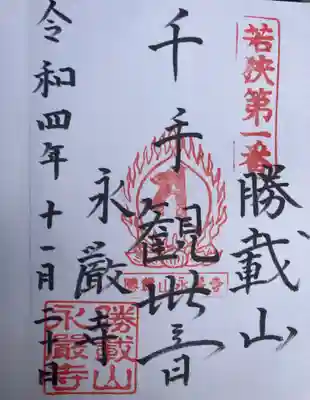 若狭第一番
勝載山
千手觀世音
勝載山永巖寺
永嚴寺
令和四年十一月二十日
勝載山
永嚴寺